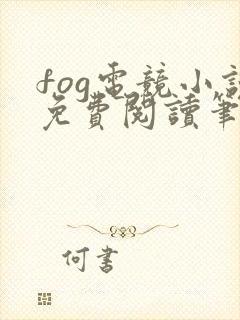 fog電競小說
免費閱讀筆
何書